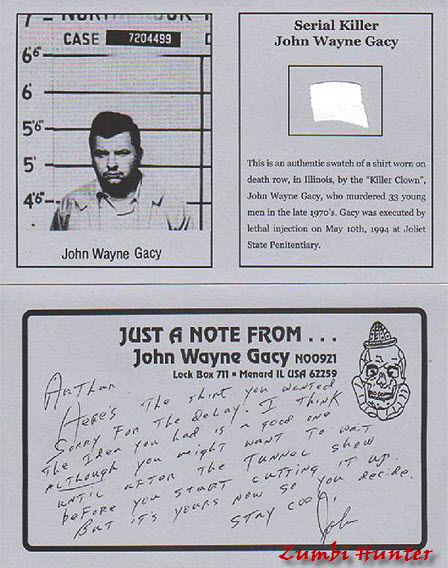 CASE 7204499
6'6"
6'
5'6"
5'
4'6"
John Wayne Gacy
Serial Killer
John Wayne Gacy
This is an authentic swatch of a shirt worn on
death row, in Illinois, by the "Killer Clown",
John Wayne Gacy, who murdered 33 young
men in the late 1970's. Gacy was executed by
lethal injection on May 10th, 1994 at Joliet
State Penitentiary.
JUST A NOTE FROM . . .
John Wayne Gacy N00921
Lock Box 711 • Menard IL USA 62259
Arthur
Here's the shirt you wanted
Sorry for the delay. I think
the idea you had is a good one
although you might want to wait
until after the tunnel show
before you start cutting it up.
But it's yours now so you decide.
Stay cool,
John
Zumbi Hunter